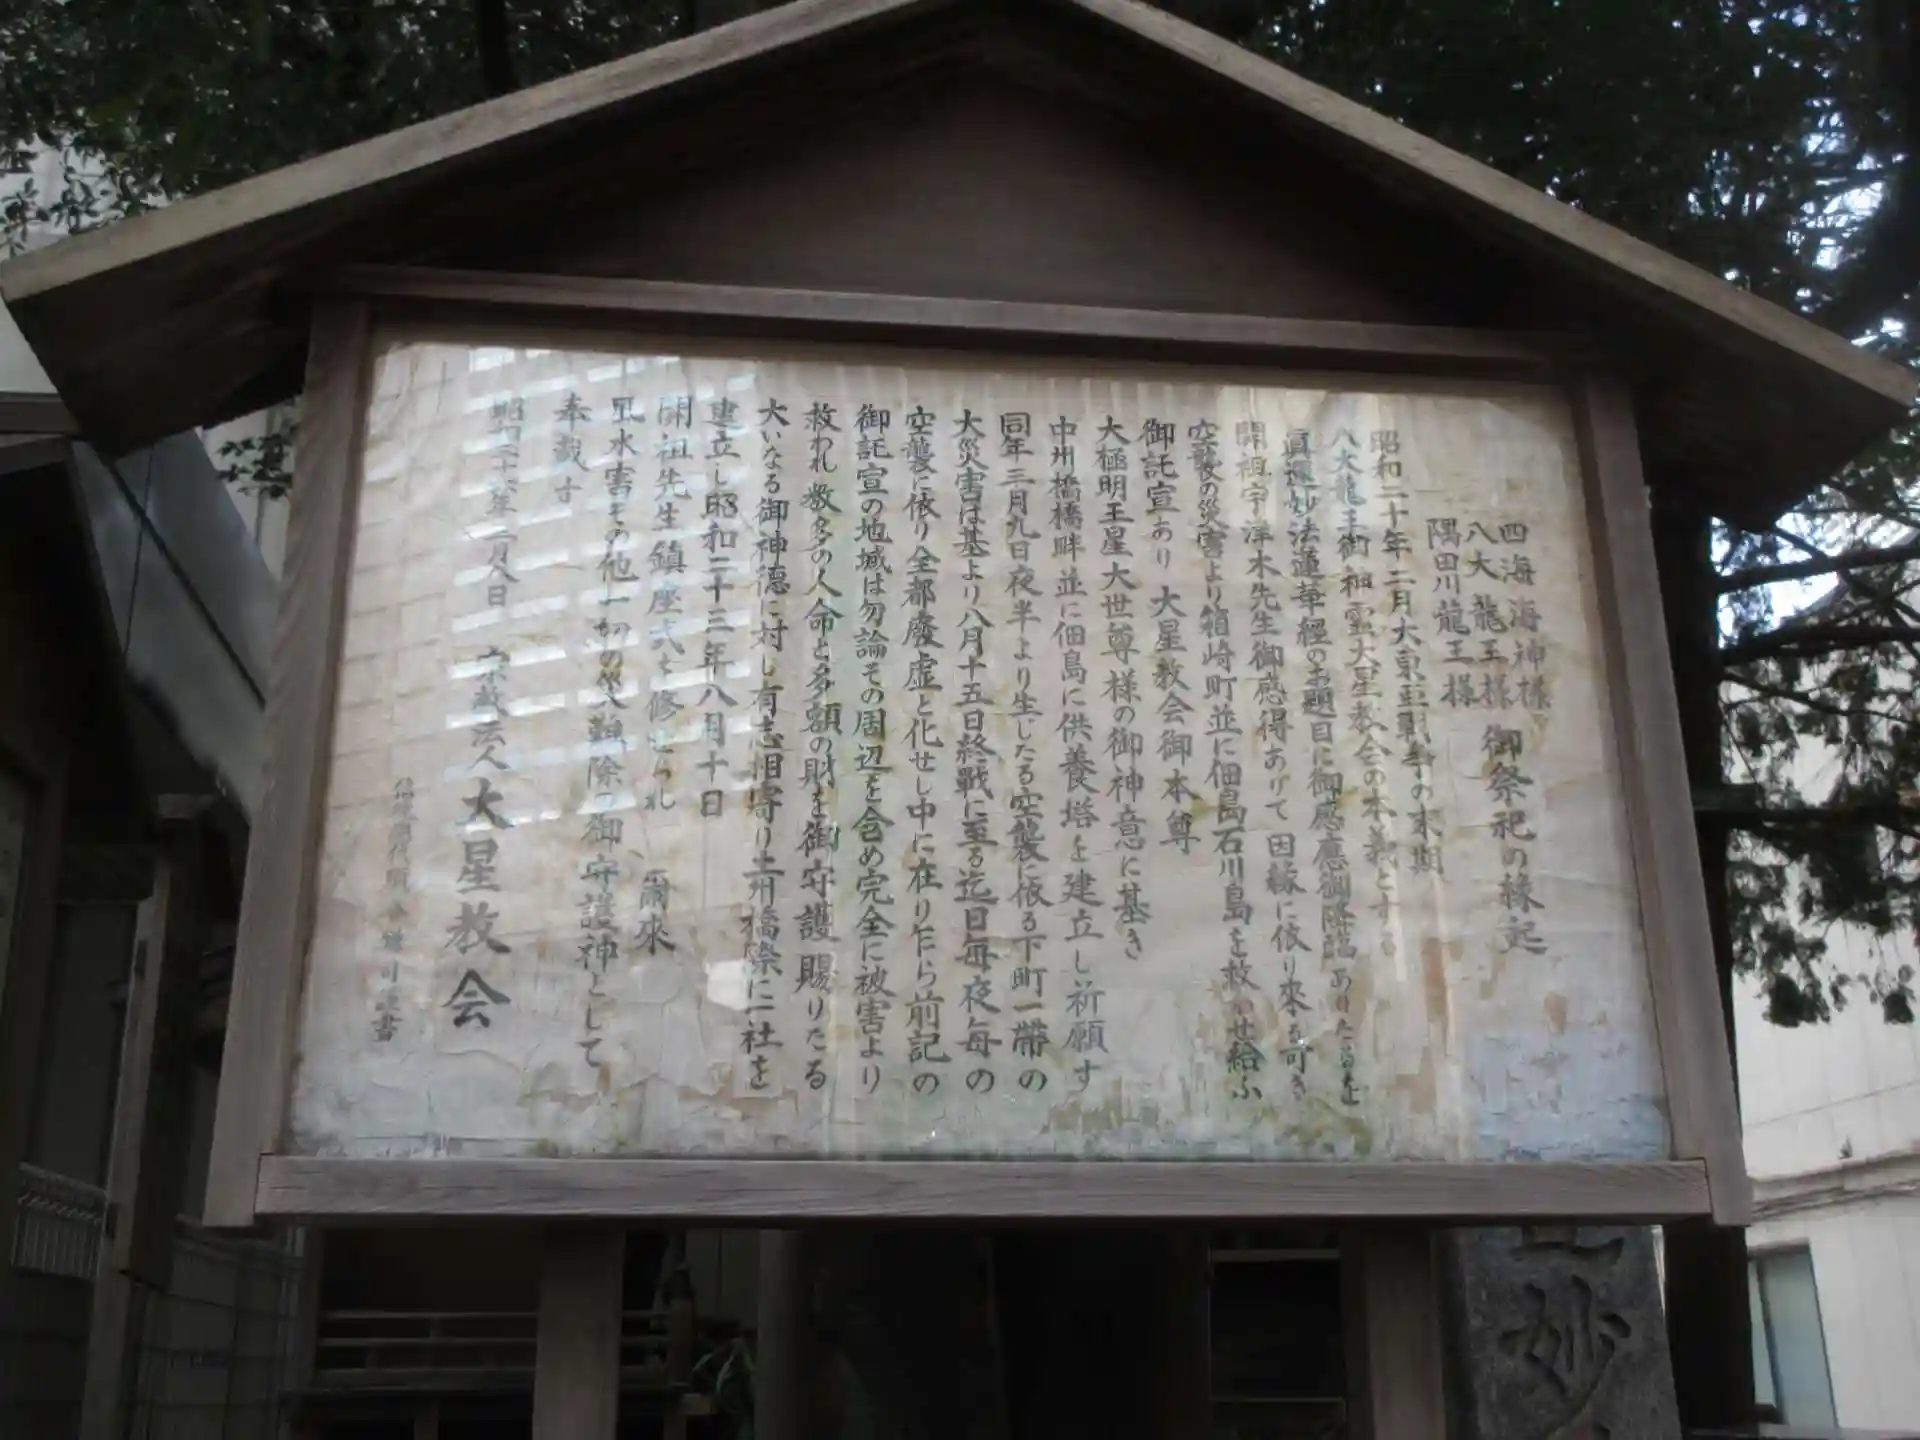 四海海神様
八大龍王様 御祭祀の縁起
隅田川龍王様
昭和二十年二月大東亜戦争の末期
八大龍王御神霊大星教会の本義とする
眞選妙法蓮華経のお題目に御感應御降臨ありたるを
開祖宇津木先生御感得あげて因縁に依り來る可き
空襲の災害より箱崎町並に佃島石川島を救わせ給ふ
御託宣あり 大星教会御本尊
大極明王星大世尊様の御神意に基き
中州橋橋畔並に佃島に供養塔を建立し祈願す
同年三月九日夜半より生じたる空襲に依る下町一帯の
大災害は基より八月十五日終戰に至る迄日毎夜毎の
空襲に依り全都廢虚と化せし中に在り乍ら前記の
御託宣の地域は勿論その周辺を含め完全に被害より
救われ数多の人命と多額の財を御守護賜りたる
大いなる御神德に対し有志相寄り土州橋際に一社を
建立し昭和二十三年八月十日
開祖先生鎮座式を修せられ 爾來
風水害その他一切の災難除の御守護神として
奉裁す
昭和 年二月八日 宗教法人大星教会
書
妙